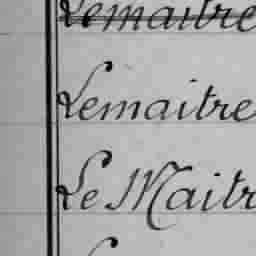 Lemaitre
Lemaitre
Le Maitr